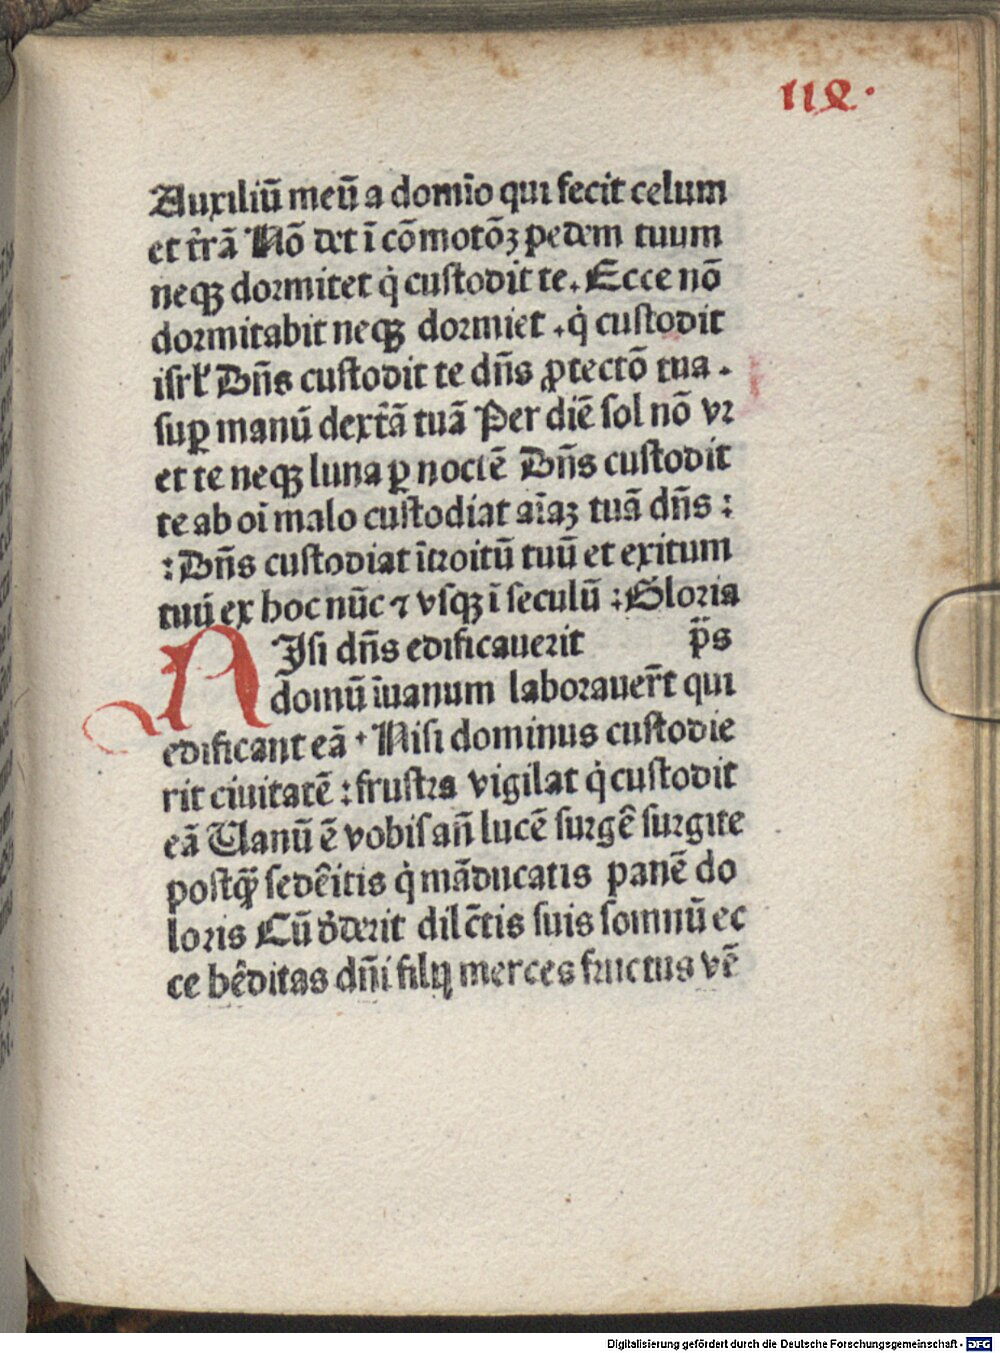 118.
Auxiliū meū a domīo qui fecit celum
et t̄rā Nō det ī cōmotōꝫ pedem tuum
neqꝫ dormitet q̇ custodit te. Ecce nō
dormitabit neqꝫ dormiet .q̇ custodit
isrl̓ Dn̄s custodit te dn̄s ꝓtectō tua.
suꝑ manū dext̄ā tuā Per diē sol nō vr
et te neqꝫ luna ꝑ noctē Dn̄s custodit
te ab oī malo custodiat aīaꝫ tuā dn̄s :
: Dn̄s custodiat ītroitū tuū et exitum
tuū ex hoc nūc ⁊ vsqꝫ ī seculū : Gloria
NIsi dn̄s edificauerit p̄s
domū īuanum laborauer̄t qui
edificant eā . Nisi dominus custodie
rit ciuitatē : frustra vigilat q̇ custodit
eā Uanū ē vobis an̄ lucē surgē surgite
postq̄ȝ sedēitis q̇ māducatis panē do
loris Cū dederit dilc̄tis suis somnū ec
ce hēditas dn̄i filij merces fructus vē
Digitalisierung gefördert durch die Deutsche Forschungsgemeinschaft - DFG